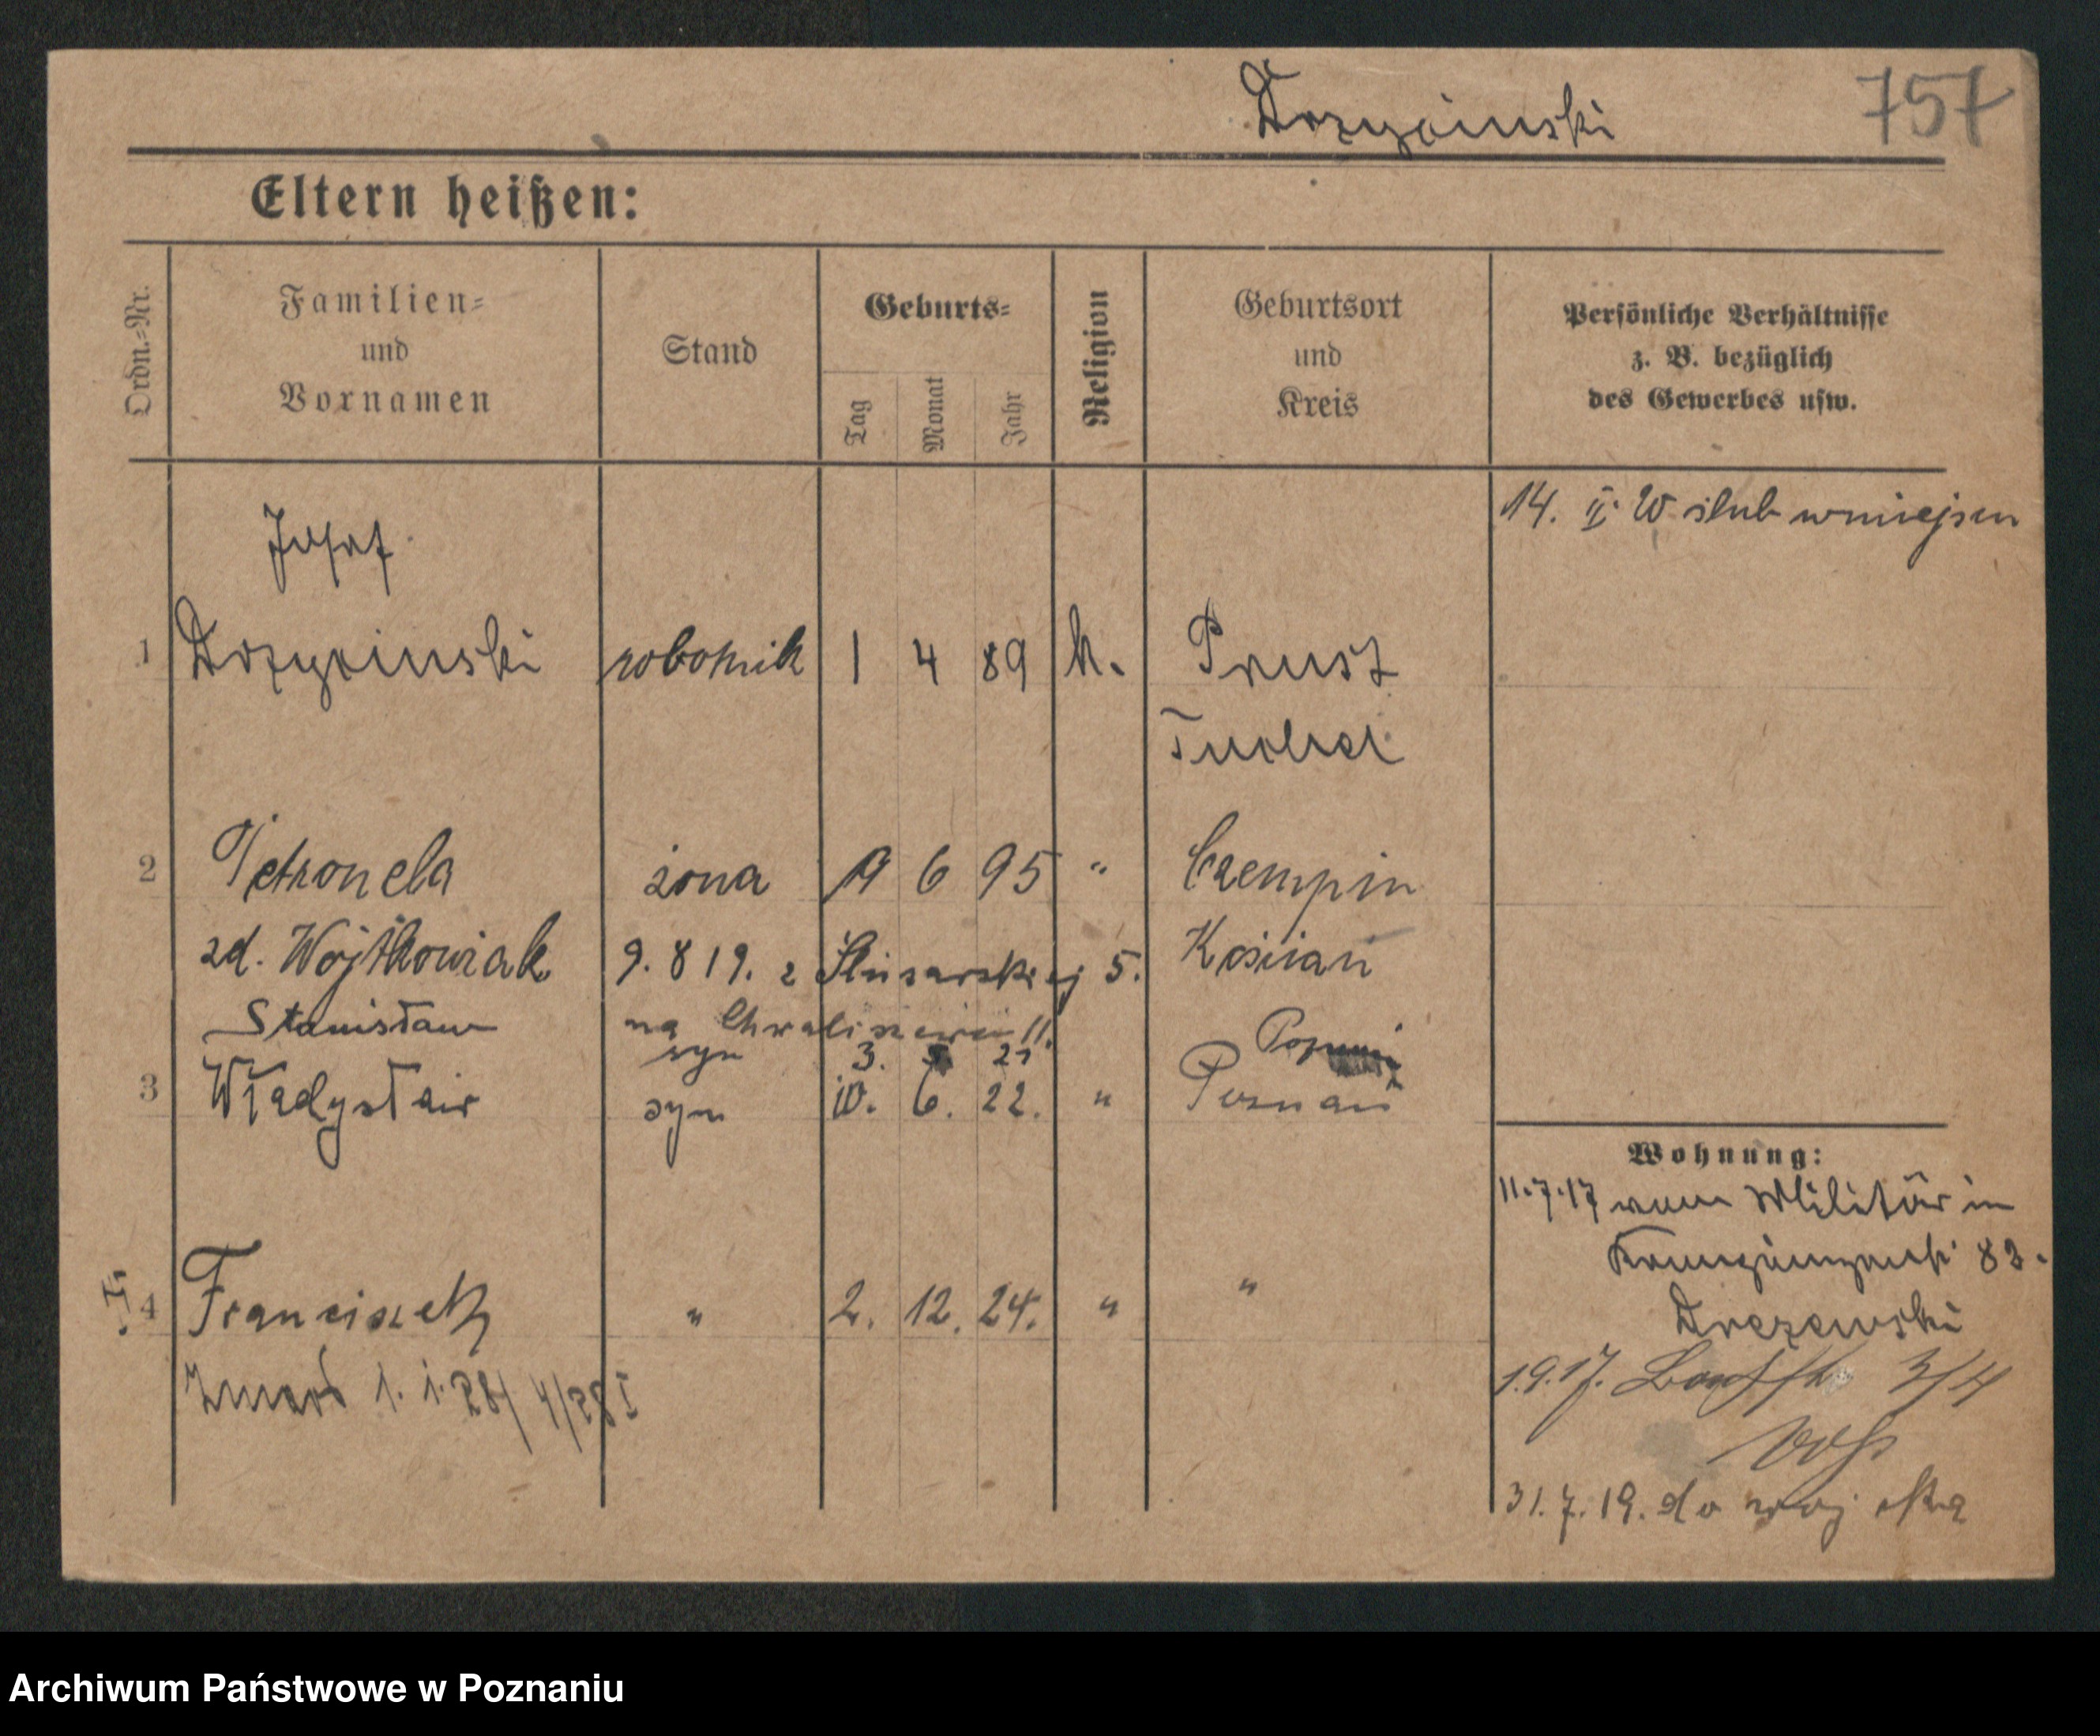 757
Eltern heißen:
Ordn.=Nr.
Familien=
und
Vornamen
Stand
Geburts=
Tag
Monat
Jahr
Religion
Geburtsort
und
Kreis
Persönliche Verhältnisse
z. B. bezüglich
des Gewerbes usw.
14. II. ślub
Josef
1 robotnik 1 4 89 k. Prust
Tuchel
2 Petronela żona 9 6 95 " Czempin
zd. Wojtkowiak 9. 8 19. z Ślusarskiej 5. Kościan
Stanisław na Chwaliszewie 11.
syn 3. 21
3 Władysław syn 10. 6. 22. " Poznań
Wohnung:
11.7.17 vom Militär in
83.
Drezewski
4 Franciszek " 2. 12. 24. " "
1.9.17. 3/4
Zmarł 1. 1. 28/ 4/28 I
31.7.19. do wojska
Archiwum Państwowe w Poznaniu